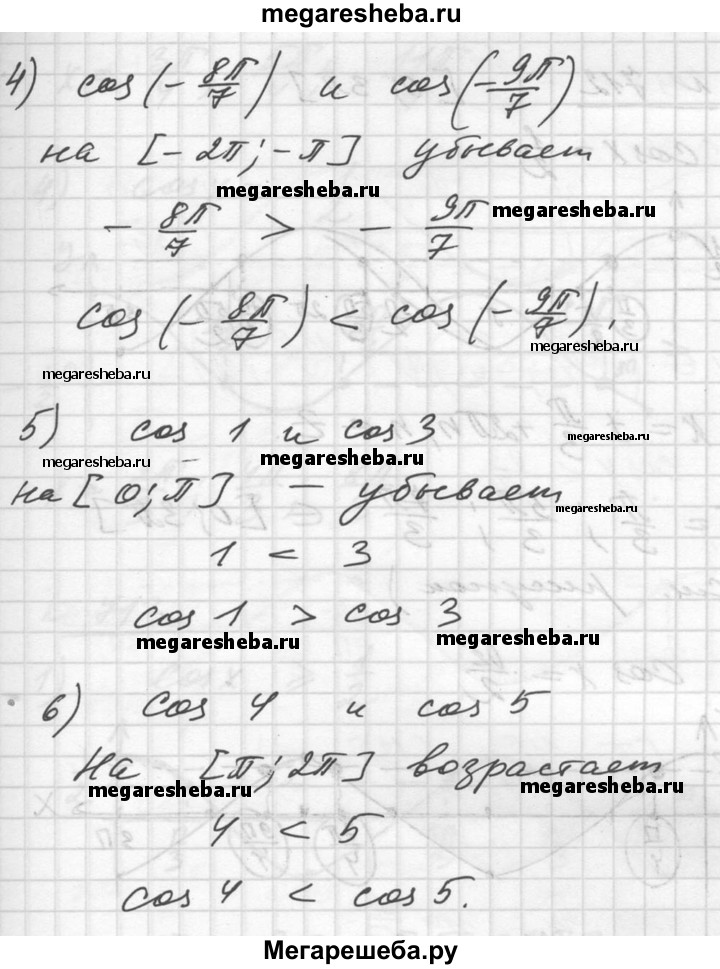 megaresheba.ru
4) cos(-8π/7) и cos(-9π/7)
на [-2π; -π] убывает
megaresheba.ru
- 8π/7 > - 9π/7
megaresheba.ru
cos(-8π/7) < cos(-9π/7).
megaresheba.ru
megaresheba.ru
5) cos 1 и cos 3
megaresheba.ru
megaresheba.ru
megaresheba.ru
на [0; π] – убывает
megaresheba.ru
1 < 3
cos 1 > cos 3
megaresheba.ru
megaresheba.ru
6) cos 4 и cos 5
На [π; 2π] возрастает
megaresheba.ru
megaresheba.ru
4 < 5
cos 4 < cos 5.
Мегарешеба.ру